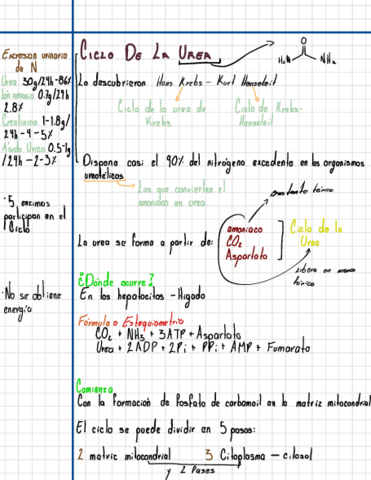 Excresion urinario
de N
Urea 30g/24h-86%
Ion amonio 0.7g/24h
2.8%
Creatinina 1-1.8g/
24h-4-5%
Ácido Urico 0.5-1g
/24h-2-3%
· 5 enzimas
participan en el
Ciclo
· No se obtiene
energía
CICLO DE LA UREA
H₂N
O
NH₂
Lo descubrieron Hans Krebs - Kurl Henseleit
Ciclo de la urea de
Krebs
Ciclo de Krebs-
Henseleit
Dispone casi el 90% del nitrógeno excedente en los organismos
ureotélicos
Los que convierten el
amoniaco en urea
La urea se forma a partir de:
amoniaco
CO₂
Aspartato
Ciclo de la
Urea
tóxico
Libera en menos
tóxico
¿Dónde ocurre?
En los hepatocitos - Hígado
Fórmula o Estequiometria
CO₂ + NH₃ + 3ATP + Aspartato
Urea + 2ADP + 2Pi + PPi + AMP + Fumarato
Comienza
Con la formación de fosfato de carbamoil en la matriz mitocondrial
El ciclo se puede dividir en 5 pasos:
2 matriz mitocondrial 3 Citoplasma - citosol
y 2 fases